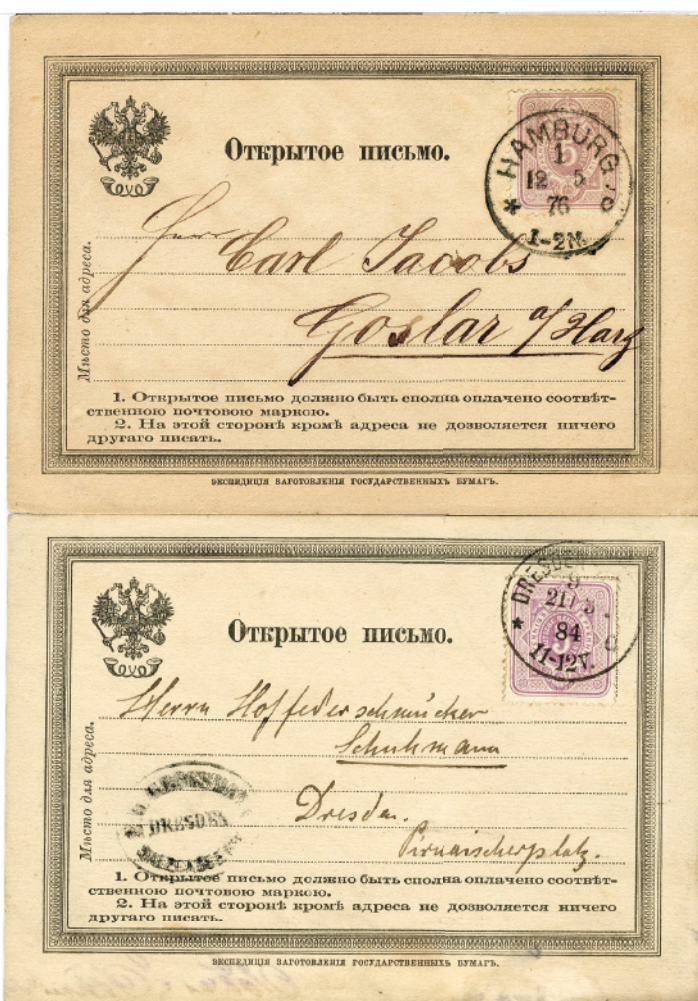 Открытое письмо.
HAMBURG
1
12 5
76
1-2N.
5
Мѣсто для адреса.
Herrn Carl Jacobs
Goslar a/Harz
1. Открытое письмо должно быть сполна оплачено соотвѣт-
ственною почтовою маркою.
2. На этой сторонѣ кромѣ адреса не дозволяется ничего
другаго писать.
ЭКСПЕДИЦІЯ ЗАГОТОВЛЕНІЯ ГОСУДАРСТВЕННЫХЪ БУМАГЪ.
Открытое письмо.
DRESDEN
9
84
11-12V.
Мѣсто для адреса.
Herrn Hoffederschmücker
Schuhmann
Dresden.
Pirnaischerplatz.
DRESDEN
1. Открытое письмо должно быть сполна оплачено соотвѣт-
ственною почтовою маркою.
2. На этой сторонѣ кромѣ адреса не дозволяется ничего
другаго писать.
ЭКСПЕДИЦІЯ ЗАГОТОВЛЕНІЯ ГОСУДАРСТВЕННЫХЪ БУМАГЪ.